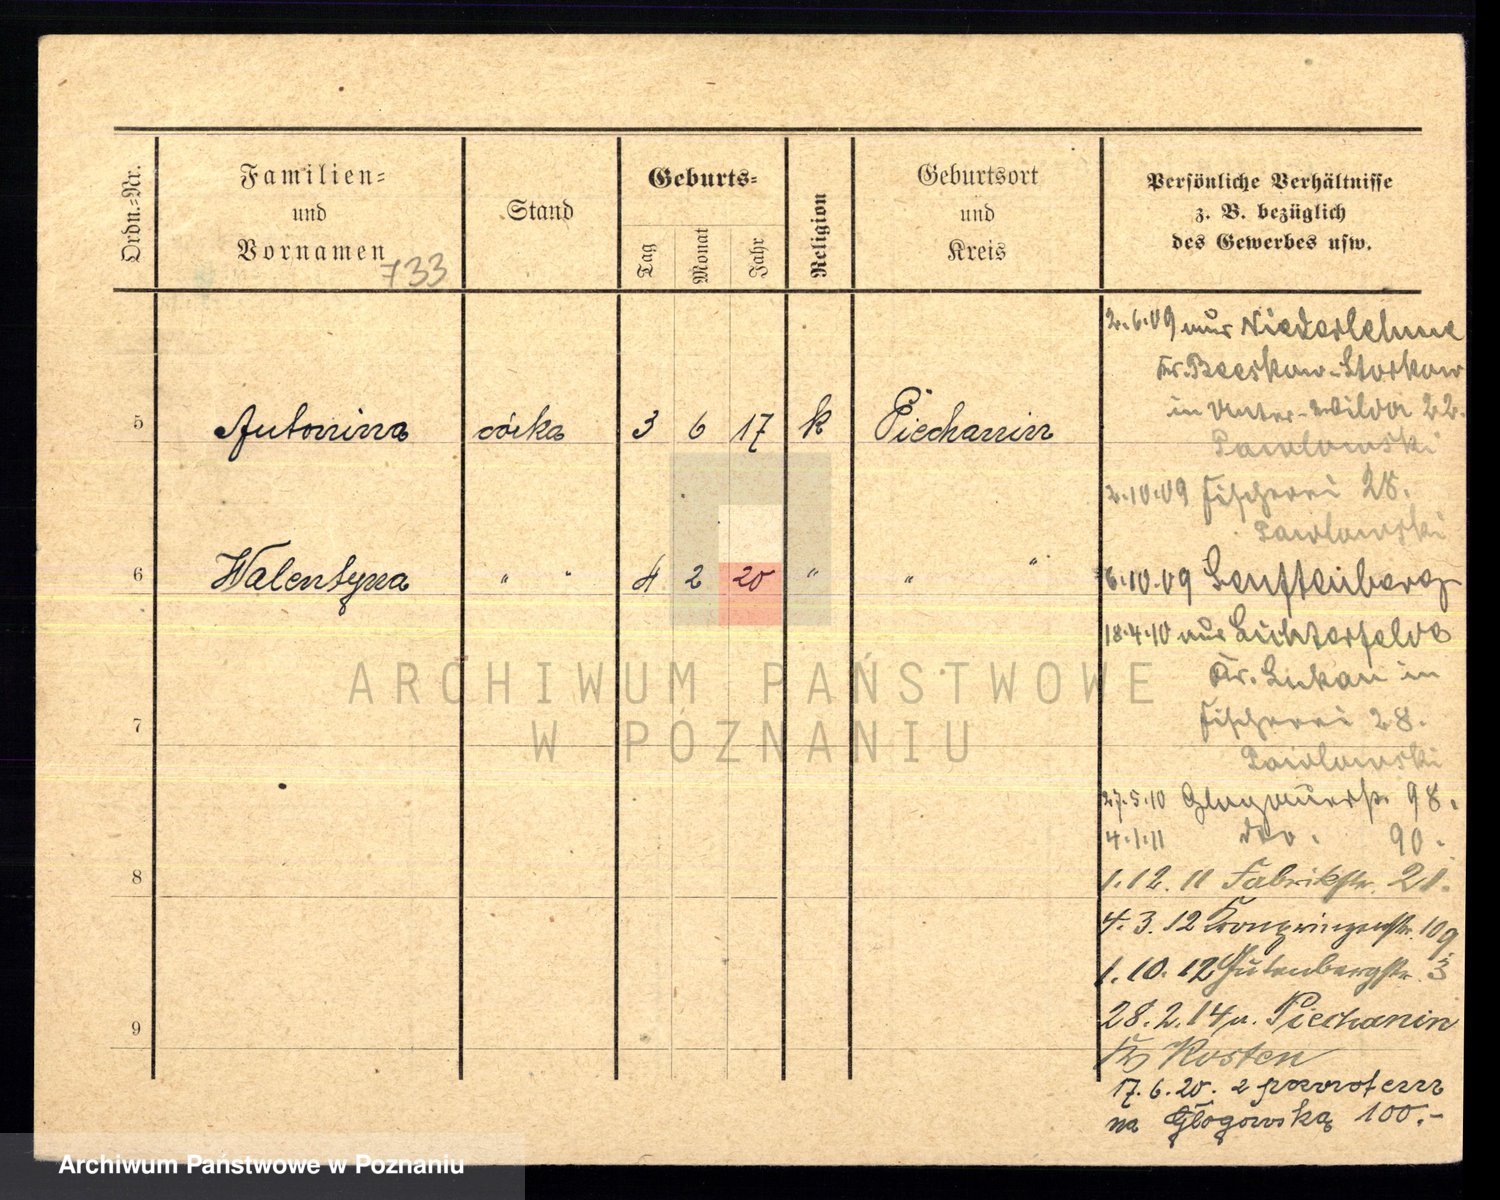 Ordn.-Nr.
Familien-
und
Vornamen
733
Stand
Geburts-
Tag
Monat
Jahr
Religion
Geburtsort
und
Kreis
Persönliche Verhältnisse
z. B. bezüglich
des Gewerbes usw.
5 Antonina córka 3 6 17 k Piechanin
6 Walentyna " " 4 2 20 " " "
7
8
9
2.6.09 nur Niederlehme
Kr. Beeskow-Storkow
in Unter-Wilda 22.
Pawlowski
2.10.09 Fischerei 28.
Pawlowski
6.10.09 Senftenberg
18.4.10 aus Lichterfelde
Kr. Lukau in
Fischerei 28.
Pawlowski
27.5.10 Glogauerstr. 98.
4.1.11 dto. 90.
1.12.11 Fabrikstr. 21.
4.3.12 Kronprinzenstr. 109
1.10.12 Gutenbergstr. 3
28.2.14 n. Piechanin
Kr Kosten
17.6.20. z powrotem
na Głogowską 100.-
ARCHIWUM PAŃSTWOWE
W POZNANIU
Archiwum Państwowe w Poznaniu